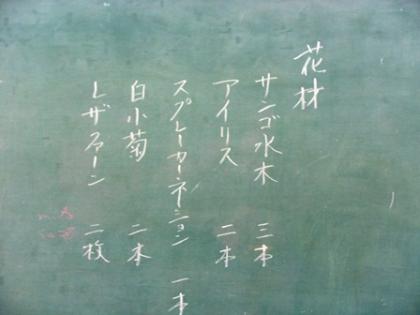 花材
サンゴ水木 三本
アイリス 二本
スプレーカーネーション 一本
白小菊 二本
レザファーン 二枚